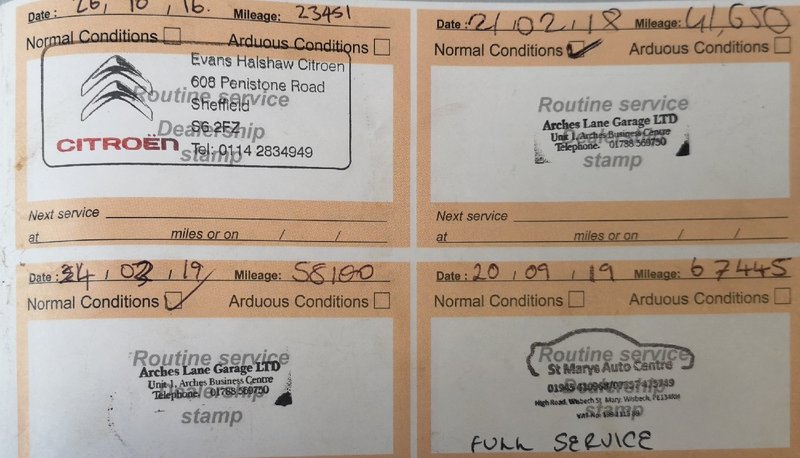 Date : 26 , 10 , 16. Mileage: 23451
Normal Conditions Arduous Conditions
Evans Halshaw Citroen
608 Penistone Road
Routine service
Sheffield
Dealership
S6 2EZ
CITROËN Tel: 0114 2834949
stamp
Next service
at miles or on / /
Date : 21 , 02 , 18 Mileage: 41,650
Normal Conditions Arduous Conditions
Routine service
Arches Lane Garage LTD
Unit 1, Arches Business Centre
Telephone. 01788 569750
stamp
Next service
at miles or on / /
Date : 24 , 03 , 19 Mileage: 58100
Normal Conditions Arduous Conditions
Routine service
Arches Lane Garage LTD
Unit 1, Arches Business Centre
Dealership
Telephone. 01788 569750
stamp
Date : 20 , 09 , 19 Mileage: 67445
Normal Conditions Arduous Conditions
Routine service
St Marys Auto Centre
High Road, Wisbech St. Mary, Wisbech,
stamp
FULL SERVICE